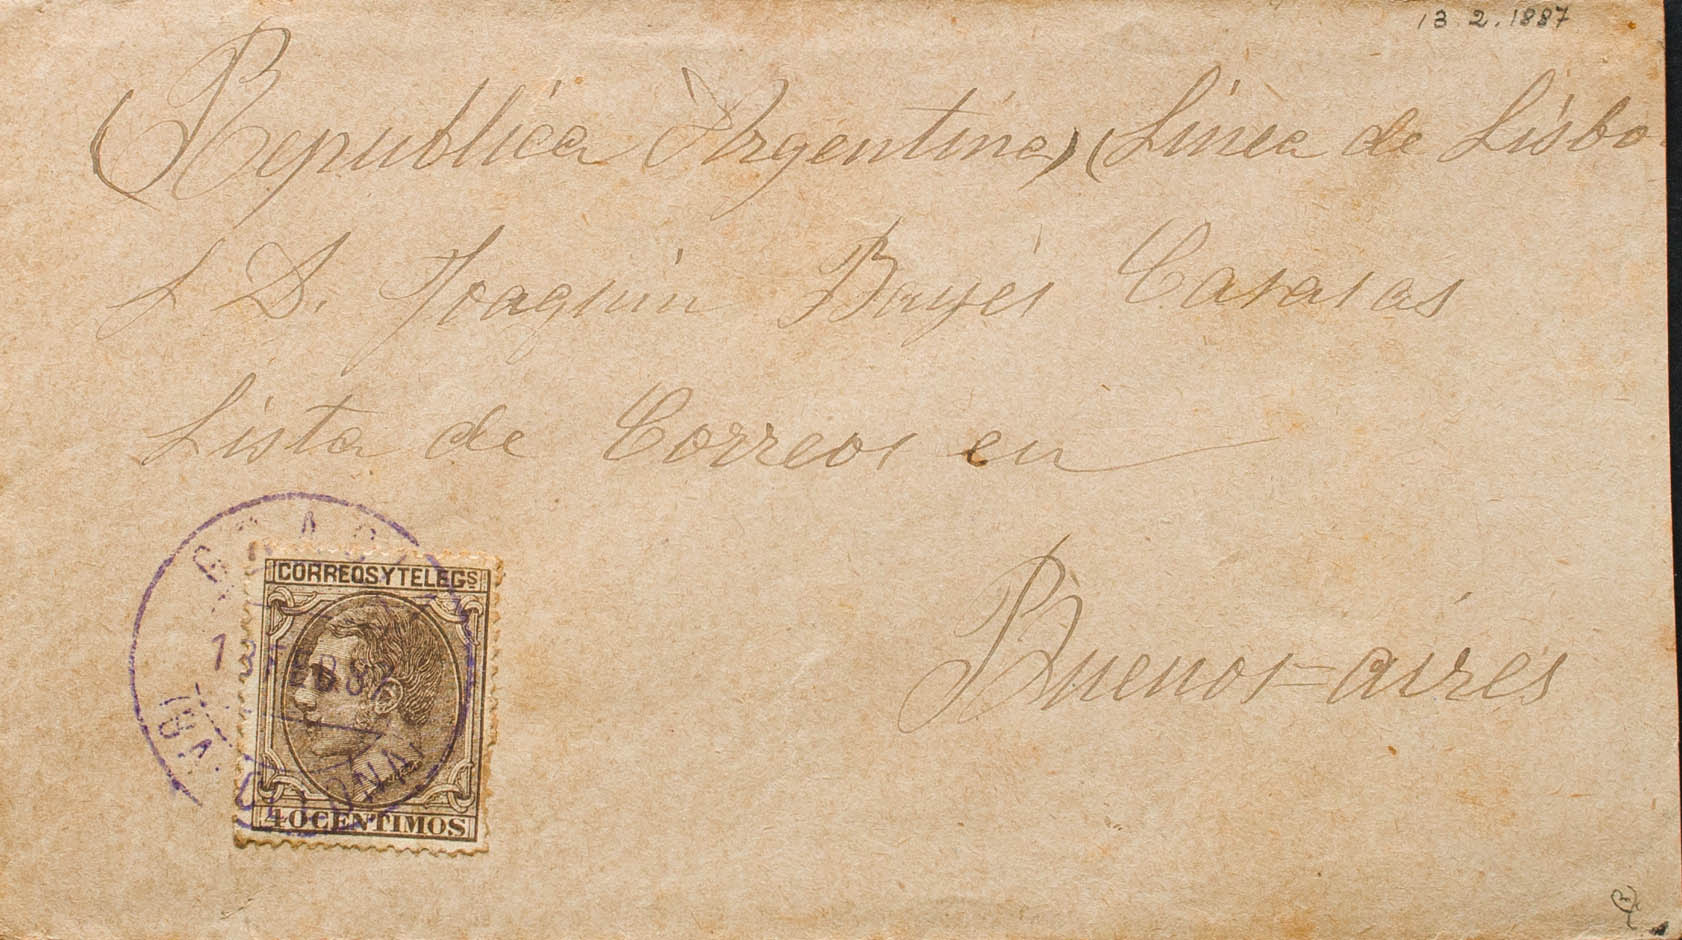 13.2.1887
(Republica Argentina) (Linea de Lisbo
D. Joaquin Bayes Casasas
Lista de Correos en
Buenos=aires
CORREOS Y TELEGS
40 CENTIMOS